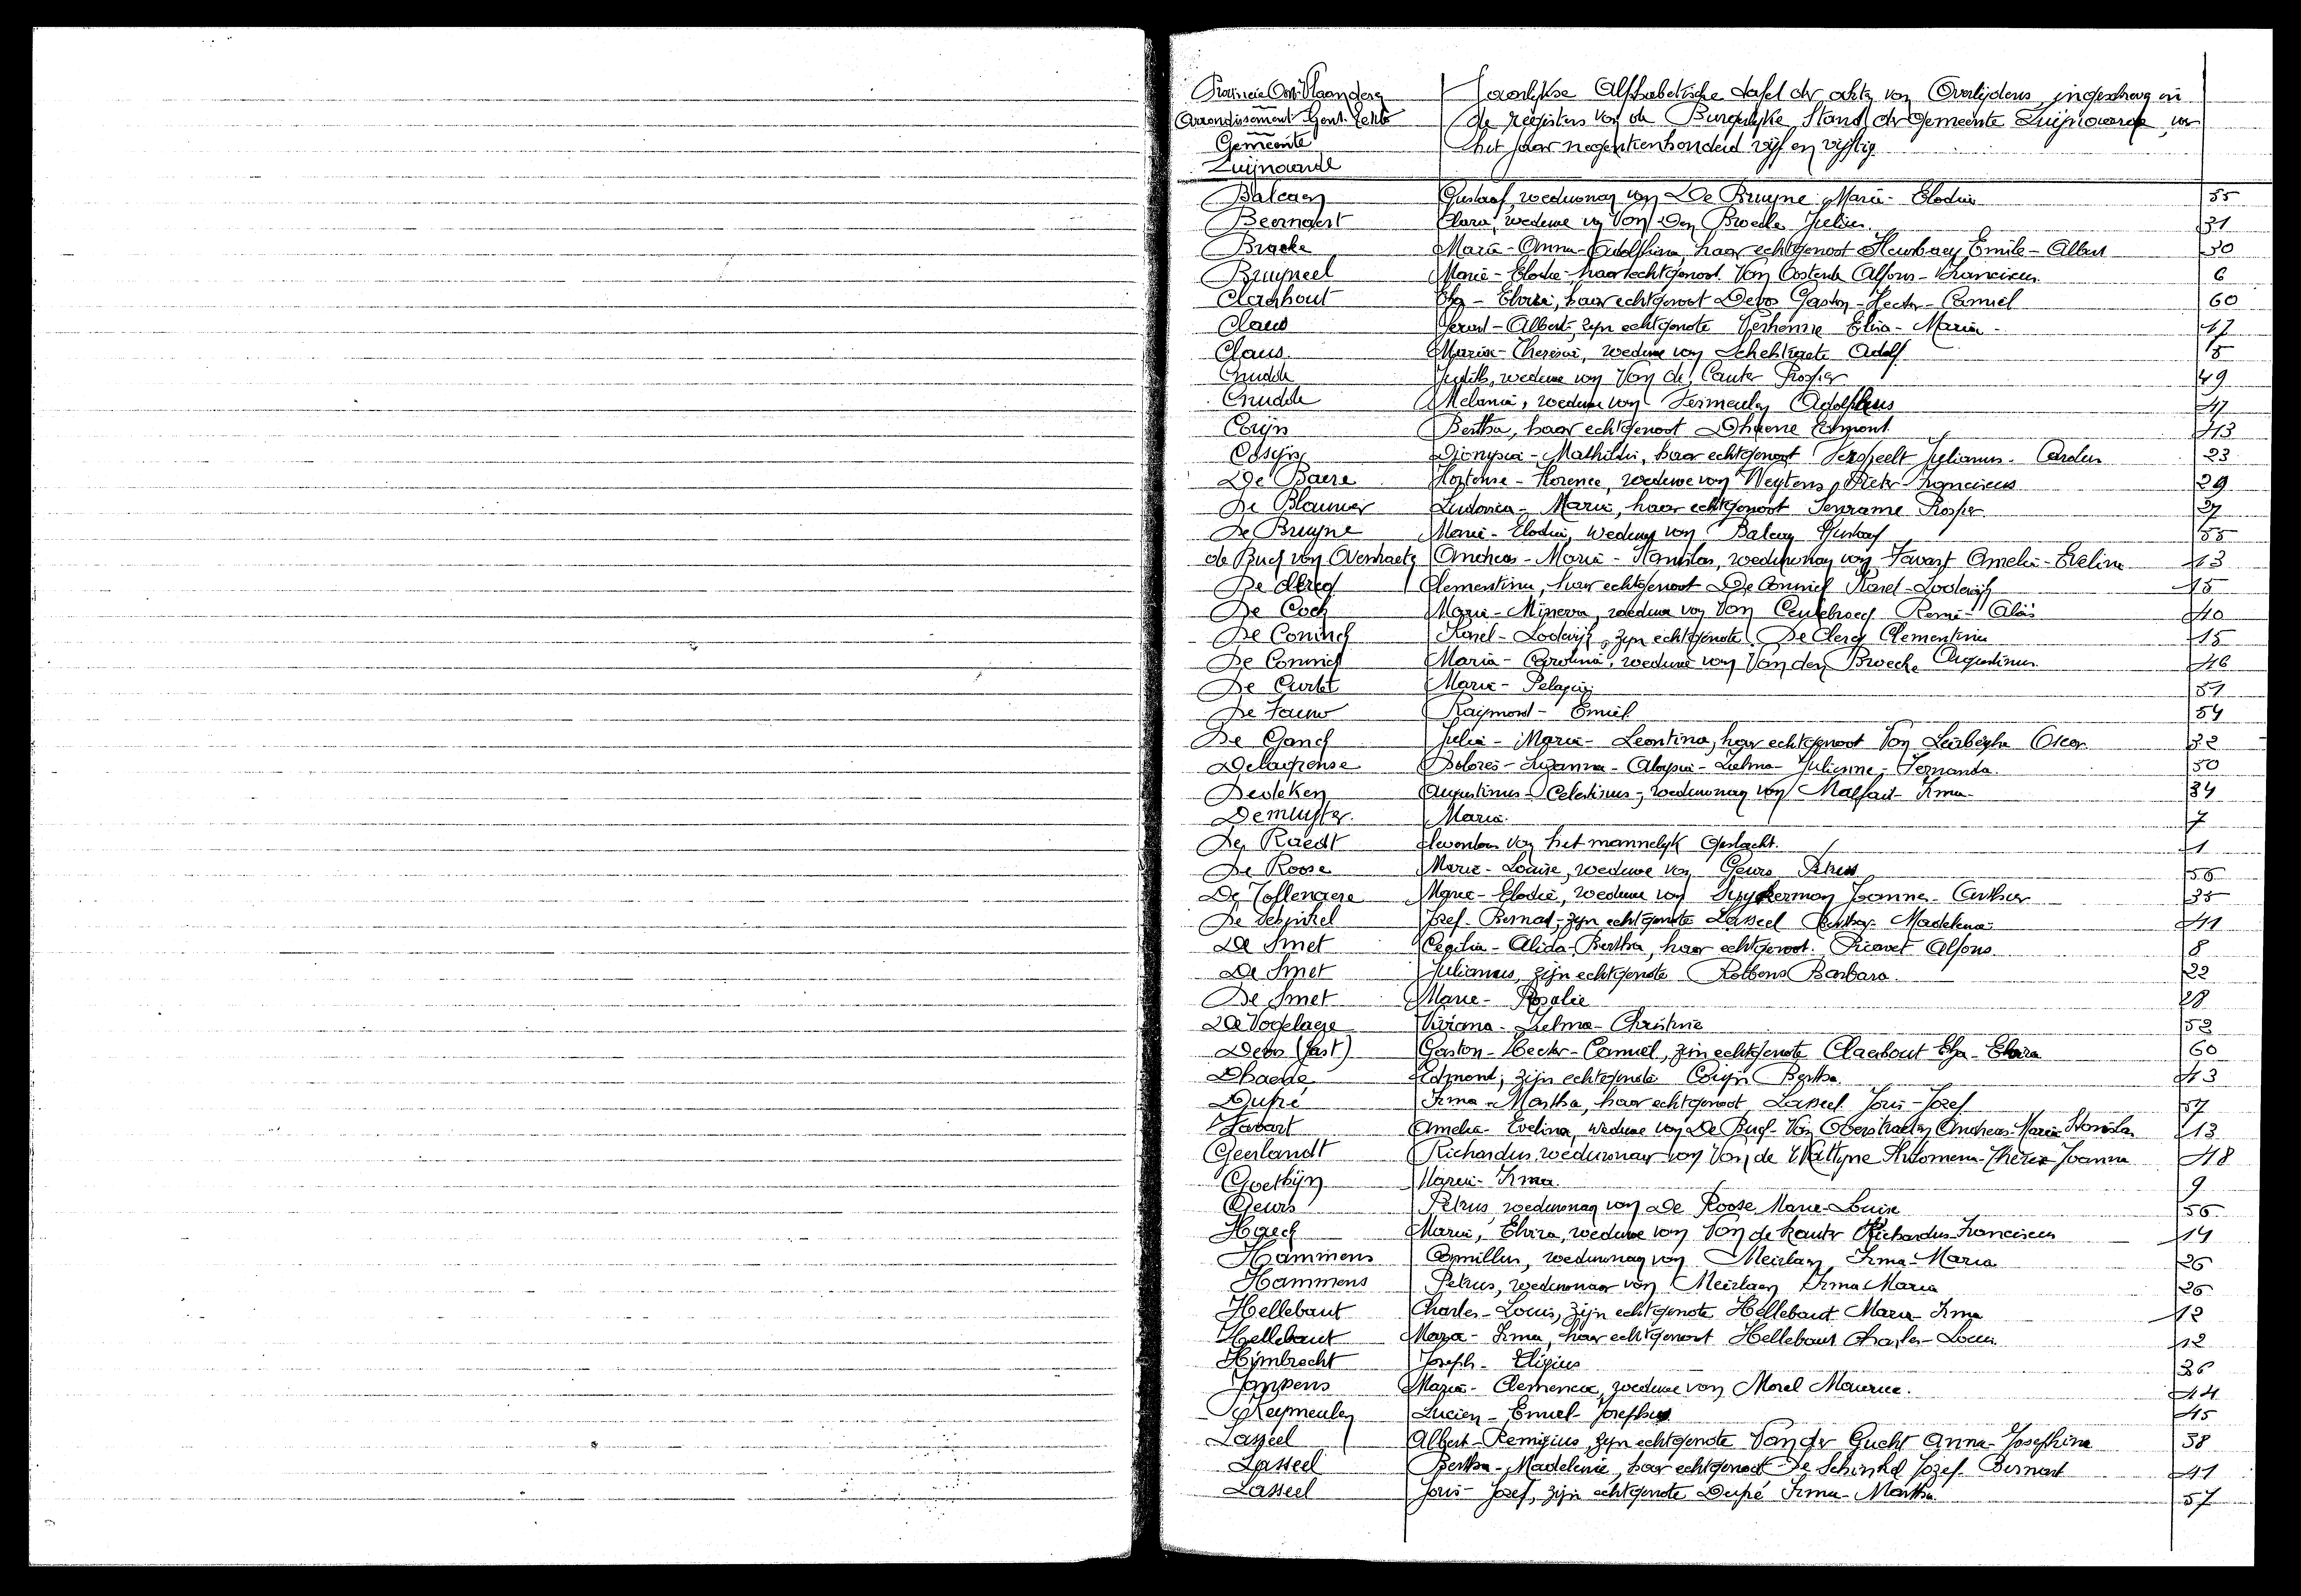 Provincie Oost-Vlaanderen Jaarlijkse Alphabetische tafel der akten van Overlijdens, ingeschreven in
Arrondissement Gent-Eeklo de registers van de Burgerlyke Stand der Gemeente Zwijnaarde, voor
Gemeente het jaar negentienhonderd vijf en vijftig
Zwijnaarde
Balcaen Gustaaf, weduwnaar van De Bruyne Marie-Elodie 55
Beernaert Clara, weduwe van Van Den Broecke Julien 31
Bracke Maria-Anna-Adolphina, haar echtgenoot Emile-Albert 30
Bruyneel Marie-Elodie haar echtgenoot Van Oostende Alfons-Franciscus 6
Claahout Elza-Elvira, haar echtgenoot Devos Gaston-Hector-Camiel 60
Claus Gerard-Albert, zijn echtgenote Elisa-Maria 17
Claus Maria-Theresia, weduwe van Adolf 5
Cnudde Judith, weduwe van Van de Cauter Prosper 49
Cnudde Melanie, weduwe van Vermeulen Adolphus 47
Coryn Bertha, haar echtgenoot Dhaene Edmont 43
Cosyns Dionysia-Mathilde, haar echtgenoot Verspeelt Julianus-Carolus 23
De Baere Hortense-Florence, weduwe van Weytens Pieter-Franciscus 29
De Blauwer Ludovica-Marie, haar echtgenoot Prosper 27
De Bruyne Marie-Elodie, weduwe van Balcaen Gustaaf 55
de Buck van Overstraeten Andreas-Marie-Stanislas, weduwnaar van Favart Amelie-Evelina 13
De Clercq Clementina, haar echtgenoot De Coninck Karel-Lodewijk 15
De Cock Maria-Minerva, weduwe van Van Ceulebroeck Remi-Aloïs 40
De Coninck Karel-Lodewijk, zijn echtgenote De Clercq Clementina 15
De Coninck Maria-Carolina, weduwe van Van den Broecke Augustinus 46
De Curtet Marie-Pelagie 51
De Fauw Raymond-Emiel 54
De Ganck Julia-Maria-Leontina, haar echtgenoot Van Leirberghe Oscar 32
Delagrense Dolores-Suzanna-Aloysia-Zulma-Julienne-Fernanda 50
Deveken Augustinus-Celestinus, weduwnaar van Malfait Irma 34
Demuyter Maria 7
De Raedt levenloos van het mannelyk geslacht 1
De Roose Marie-Louise, weduwe van Geurs Petrus 56
De Tollenaere Marie-Elodie, weduwe van Joannes-Arthur 35
De Schinkel Jozef-Bernard, zijn echtgenote Lasseel Bertha-Madelena 41
De Smet Cecilia-Alida-Bertha, haar echtgenoot Ricavet Alfons 8
De Smet Julianus, zijn echtgenote Robbens Barbara 22
De Smet Marie-Rosalie 28
De Vogelaere Viviana-Zulma-Christine 52
Devos (Gast) Gaston-Hector-Camiel, zijn echtgenote Claahout Elza-Elvira 60
Dhaene Edmond, zijn echtgenote Coryn Bertha 43
Dupré Irma-Martha, haar echtgenoot Lasseel Joris-Jozef 57
Favart Amelia-Evelina, weduwe van De Buck-Van Overstraeten Andreas-Marie-Stanislas 13
Geerlandt Richardus, weduwnaar van Van de Wattyne Philomena-Therese-Joanna 48
Goethyn Maria-Irma 9
Geurs Petrus, weduwnaar van De Roose Marie-Louise 56
Haeck Maria, Elvira, weduwe van Van de Kauter Richardus-Franciscus 14
Hammens Camillus, weduwnaar van Meirlaen Irma-Maria 26
Hammens Petrus, weduwnaar van Meirlaen Irma Maria 26
Hellebaut Charles-Louis, zijn echtgenote Hellebaut Maria-Irma 12
Hellebaut Maria-Irma, haar echtgenoot Hellebaut Charles-Louis 12
Hijmbrecht Joseph-Eligius 36
Janssens Maria-Clemencia, weduwe van Morel Maurice 44
Keymeulen Lucien-Emiel-Josephus 45
Lasseel Albert-Remigius, zijn echtgenote Van der Gucht Anna-Josephina 38
Lasseel Bertha-Madelena, haar echtgenoot De Schinkel Jozef-Bernard 41
Lasseel Joris-Jozef, zijn echtgenote Dupré Irma-Martha 57